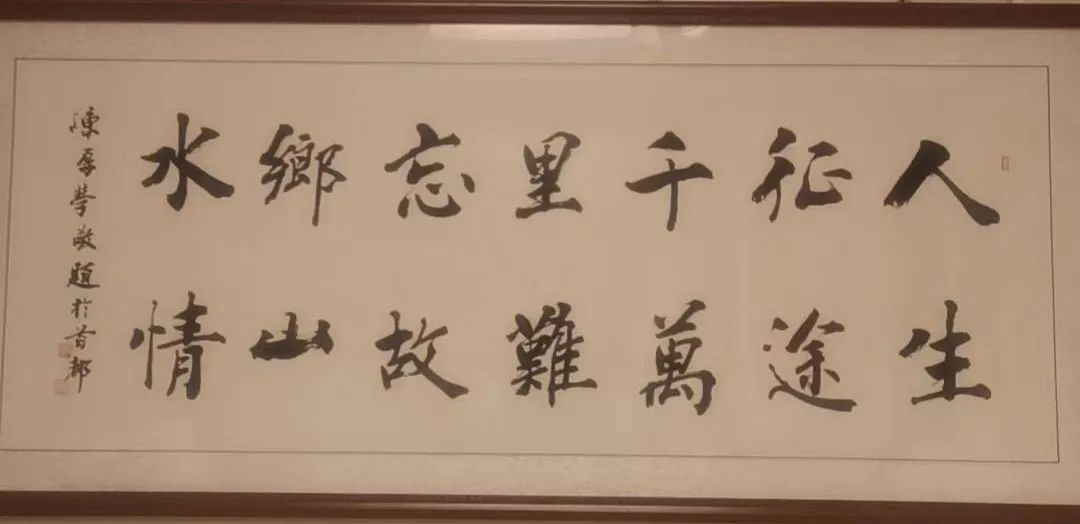 人生
征途
千萬
里難
忘故
鄉山
水情
陳學敬題於首都